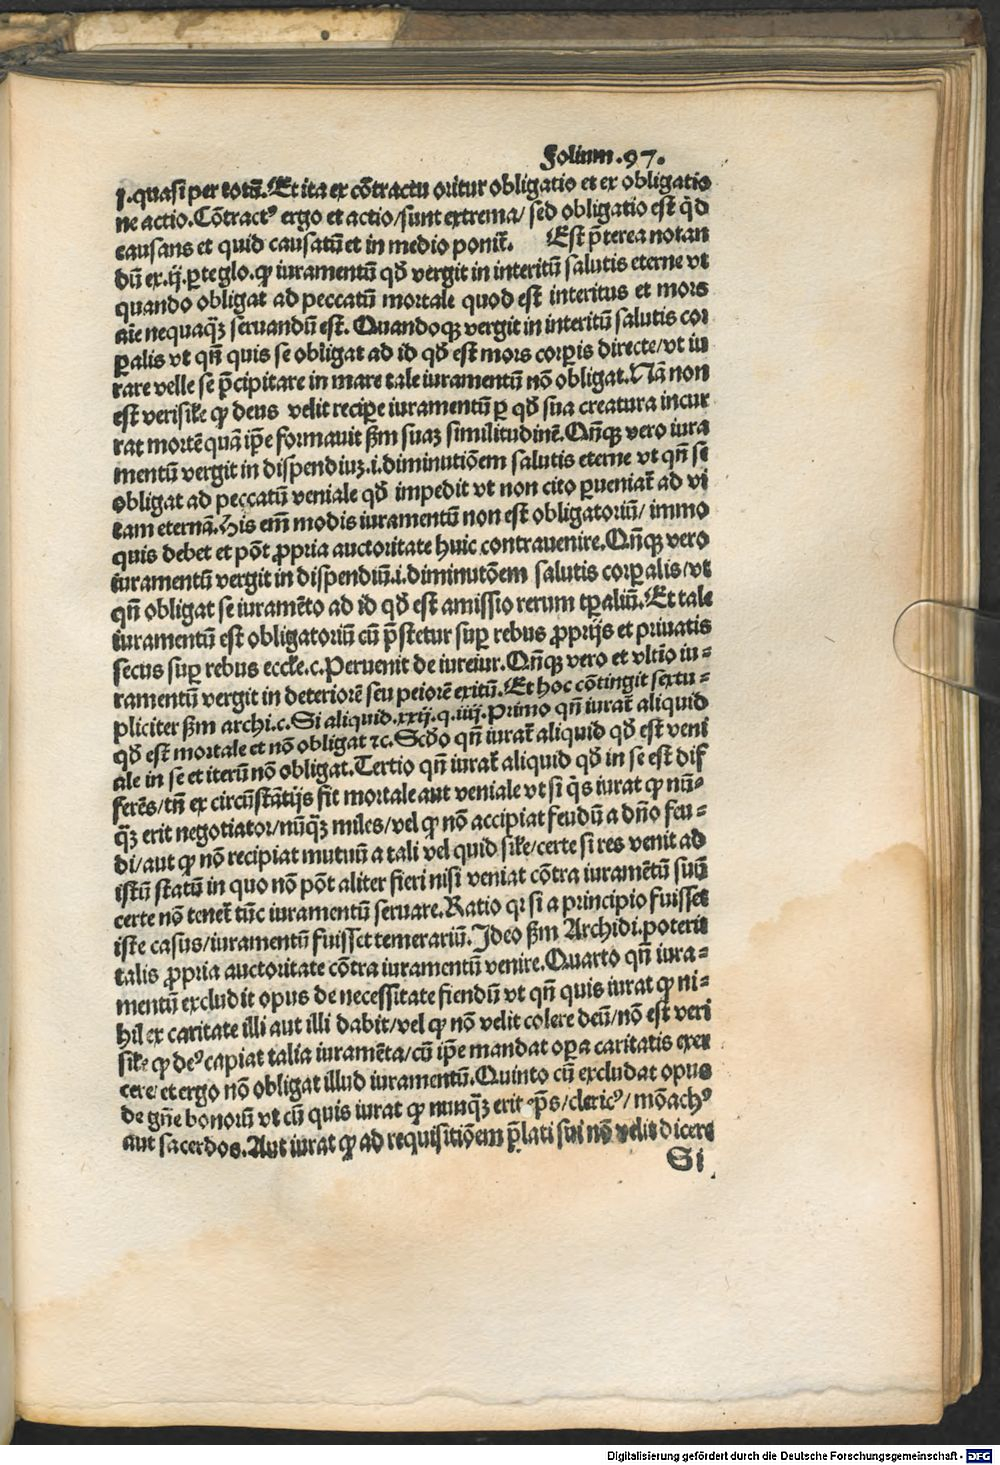 Folium .97.
j. quasi per totū. Et ita ex cōtractu oritur obligatio et ex obligatio
ne actio. Cōtractꝰ ergo et actio/sunt extrema/ sed obligatio est q̄d
causans et quid causatū et in medio ponit᷑. Est p̄terea notan
dū ex .ij. ꝑte glo. ꝙ iuramentū qd̄ vergit in interitū salutis eterne vt
quando obligat ad peccatū mortale quod est interitus et mors
aīe nequaq̄ꝫ seruandū est. Quandoqꝫ vergit in interitū salutis cor
ꝑalis vt qn̄ quis se obligat ad id qd̄ est mors corꝑis directe/vt iu
rare velle se p̄cipitare in mare tale iuramentū nō obligat. Nā non
est verisile ꝙ deus velit reciꝑe iuramentū ꝑ qd̄ sua creatura incur
rat mortē quā ip̄e formauit ẜm suaꝫ similitudinē. Qn̄qꝫ vero iura
mentū vergit in dispendiuꝫ .i. diminutiōem salutis eterne vt qn̄ se
obligat ad peccatū veniale qd̄ impedit vt non cito ꝑueniat᷑ ad vi
tam eternā. His em̄ modis iuramentū non est obligatoriū/ immo
quis debet et pōt ꝓpria auctoritate huic contrauenire. Qn̄qꝫ vero
iuramentū vergit in dispendiū .i. diminutōem salutis corꝑalis/vt
qn̄ obligat se iuramēto ad id qd̄ est amissio rerum tꝑaliū. Et tale
iuramentū est obligatoriū cū p̄stetur suꝑ rebus ꝓprijs et priuatis
secus suꝑ rebus eccle. c. Peruenit de iureiur. Qn̄qꝫ vero et vltīo iu-
ramentū vergit in deteriorē seu peiorē exitū. Et hoc cōtingit sextu-
pliciter ẜm archi. c. Si aliquid .xxij. q. iiij. Primo qn̄ iurat᷑ aliquid
qd̄ est mortale et nō obligat ⁊c. Scd̄o qn̄ iurat᷑ aliquid qd̄ est veni
ale in se et iterū nō obligat. Tertio qn̄ iurat᷑ aliquid qd̄ in se est dif
ferēs/tn̄ ex circūstātijs fit mortale aut veniale vt si q̄s iurat ꝙ nū-
q̄ꝫ erit negotiator/nūq̄ꝫ miles/vel ꝙ nō accipiat feudū a dn̄o feu-
di/aut ꝙ nō recipiat mutuū a tali vel quid sile/certe si res venit ad
istū statū in quo nō pōt aliter fieri nisi veniat cōtra iuramētū suū
certe nō tenet᷑ tūc iuramentū seruare. Ratio qꝛ si a principio fuisset
iste casus/iuramentū fuisset temerariū. Ideo ẜm Archidi. poterit
talis ꝓpria auctoritate cōtra iuramentū venire. Quarto qn̄ iura-
mentū excludit opus de necessitate fiendū vt qn̄ quis iurat ꝙ ni-
hil ex caritate illi aut illi dabit/vel ꝙ nō velit colere deū/nō est veri
sile ꝙ deꝰ capiat talia iuramēta/cū ip̄e mandat oꝑa caritatis exer
cere/et ergo nō obligat illud iuramentū. Quinto cū excludat opus
de gn̄e bonorū vt cū quis iurat ꝙ nunq̄ꝫ erit ep̄s/clericꝰ/mōachꝰ
aut sacerdos. Aut iurat ꝙ ad requisitiōem p̄lati sui nō velit dicere
Si
Digitalisierung gefördert durch die Deutsche Forschungsgemeinschaft - DFG